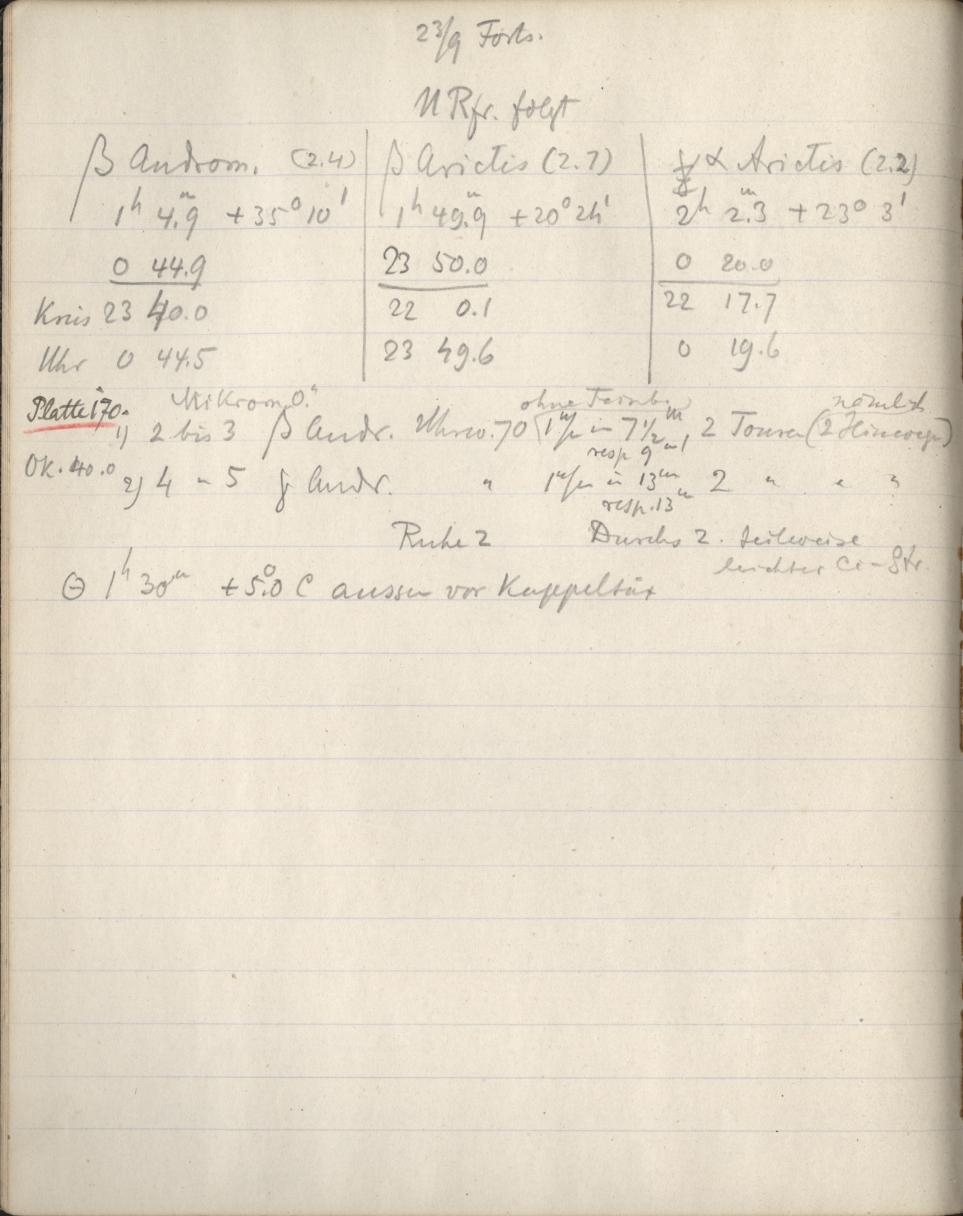 23/9 Forts.
U Rfr. folgt
β Androm. (2.4) β Arietis (2.7) α Arietis (2.2)
1h 4.m9 +35° 10' 1h 49.m9 +20° 24' 2h 2.m3 +23° 3'
0 44.9 23 50.0 0 20.0
Kreis 23 40.0 22 0.1 22 17.7
Uhr 0 44.5 23 49.6 0 19.6
Platte 170. Mikrom. 0." ohne Feinb. nämlich
1) 2 bis 3 β Andr. Uhrw. 70 (1 in 7½m 2 Touren (2 Hinwege)
resp 9m)
Ok. 40.0 2) 4 " 5 Andr. " 1 in 13m 2 " " "
resp. 13m
Ruhe 2 Durchs 2. teilweise
leichter Ci-Str.
⊖ 1h 30m +5.°0 C aussen vor Kuppeltür